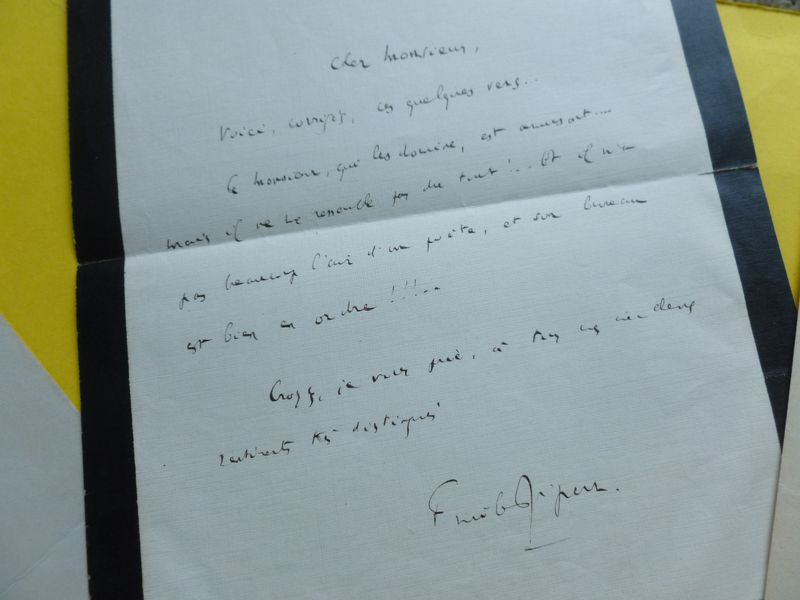 Cher Monsieur,
Voici, corrigés, ces quelques vers...
Le Monsieur, qui les domine, est amusant....
mais il ne me ressemble pas du tout !.. Et il n'a
pas beaucoup l'air d'un poète, et son bureau
est bien en ordre !!!...
Croyez, je vous prie, à mes
sentiments très distingués
Emile Ripert.